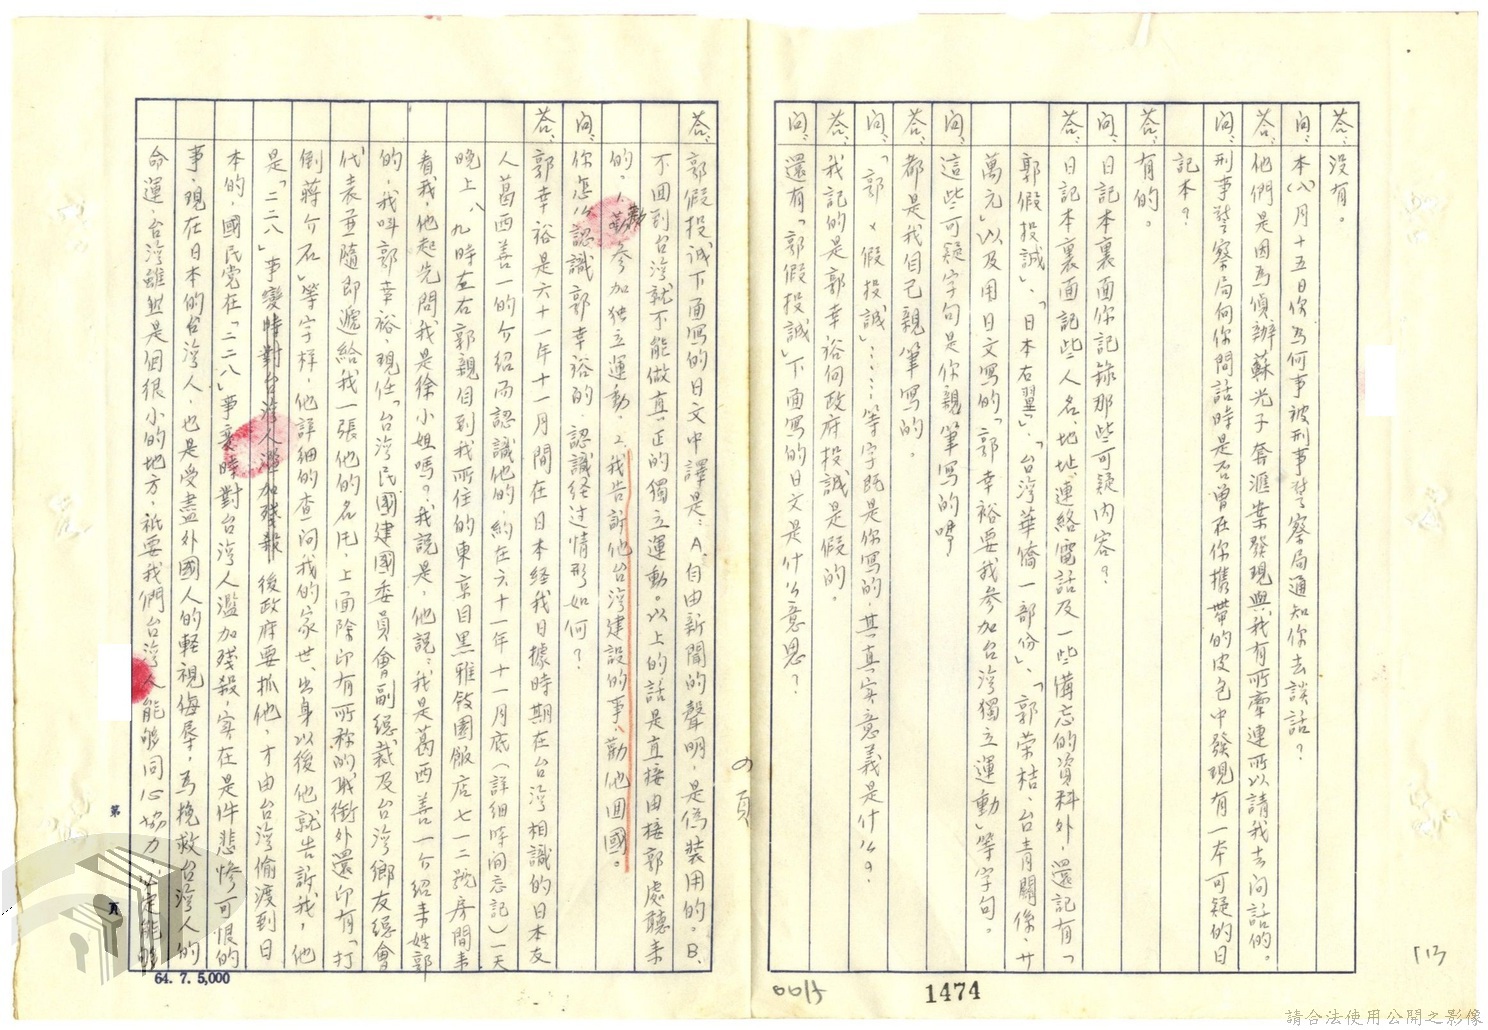 答：没有。
問：本(八)月十五日你為何事被刑事警察局通知你去談話？
答：他們是因為偵辦蘇光子奔滙案發現與我有所牽連所以請我去問話的。
問：刑事警察局向你問話時是否曾在你攜帶的皮包中發現有一本可疑的日
記本？
答：有的。
問：日記本裏面你記錄那些可疑內容？
答：日記本裏面記些人名、地址、連絡電話及一些備忘的資料外，還記有「
郭假投誠」、「日本右翼」、「台灣華僑一部份」、「郭荣桔、台青關係、廿
萬元」以及用日文寫的「郭幸裕要我參加台灣獨立運動」等字句。
問：這些可疑字句是你親筆寫的嗎
答：都是我自己親筆寫的。
問：「郭×假投誠」……等字既是你寫的，其真实意義是什么？
答：我記的是郭幸裕向政府投誠是假的。
問：還有「郭假投誠」下面寫的日文是什么意思？
答：郭假投诚下面写的日文中譯是：A.自由新聞的聲明，是偽裝用的。B.
不回到台灣就不能做真正的獨立運動。以上的話是直接由接郭處聽来
的，1.勸參加独立運動，2.我告訴他台灣建設的事、勸他回國。
問：你怎么認識郭幸裕的，認識経过情形如何？
答：郭幸裕是六十一年十一月間在日本経我日據時期在台灣相識的日本友
人葛西善一的介紹而認識他的，約在六十一年十一月底（詳細時间忘記）一天
晚上八、九時左右郭親自到我所住的東京目黒雅敘園飯店七一二號房間来
看我，他起先問我是徐小姐嗎？我說是，他說：我是葛西善一介紹来姓郭
的，我叫郭幸裕，現任「台灣民國建國委員會副總裁及台灣鄉友總會
代表並隨即遞給我一張他的名片，上面除印有所稱的职銜外還印有「打
倒蔣介石」等字样，他詳細的查問我的家世、出身以後他就告訴我，他
是「二二八」事變時對台灣人濫加殘殺後政府要抓他，才由台灣偷渡到日
本的，國民党在「二二八」事变時對台灣人濫加残殺，实在是件悲慘可恨的
事，現在日本的台灣人，也是受盡外國人的輕視侮辱，為挽救台灣人的
命運，台灣雖然是個很小的地方，祇要我們台灣人能够同心協力，必定能够
の頁
第
頁
64. 7. 5,000
1474
113
請合法使用公開之影像